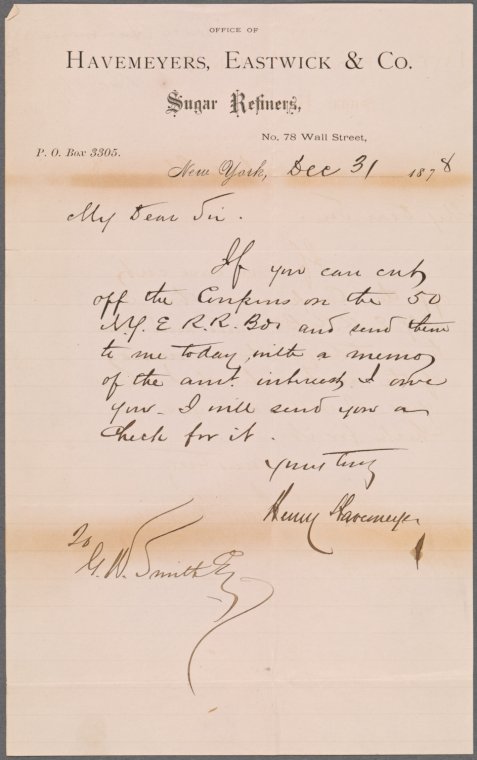 OFFICE OF
HAVEMEYERS, EASTWICK & CO.
Sugar Refiners,
No. 78 Wall Street,
P. O. Box 3305.
New York, Dec 31 1878
My Dear Sir.
If you can cut
off the Coupons on the 50
N.Y. E R.R. Bds and send them
to me today, with a memo
of the amt. interest I owe
you. I will send you a
check for it.
Yours truly
Henry Havemeyer
To
G. W. Smith Esq